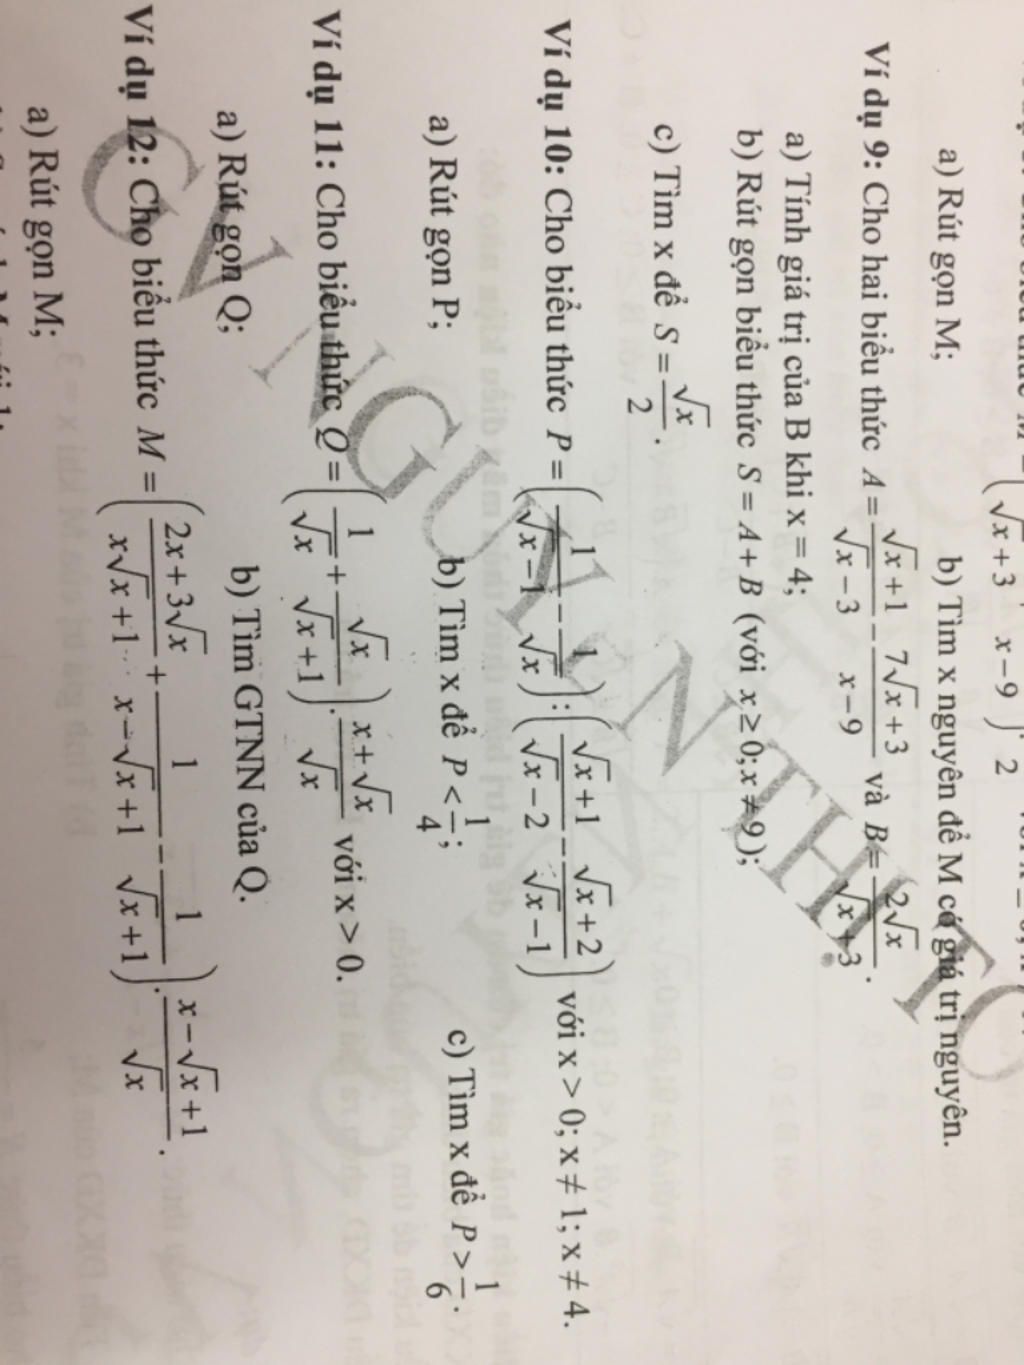 M = ( √x + 3 x − 9 ) 2
a) Rút gọn M; b) Tìm x nguyên để M có giá trị nguyên.
Ví dụ 9: Cho hai biểu thức A = (√x + 1)/(√x − 3) − (7√x + 3)/(x − 9) và B = (2√x)/(√x + 3).
a) Tính giá trị của B khi x = 4;
b) Rút gọn biểu thức S = A + B (với x ≥ 0; x ≠ 9);
c) Tìm x để S = √x/2.
Ví dụ 10: Cho biểu thức P = (1/(√x − 1) − 1/√x) : ((√x + 1)/(√x − 2) − (√x + 2)/(√x − 1)) với x > 0; x ≠ 1; x ≠ 4.
a) Rút gọn P; b) Tìm x để P < 1/4; c) Tìm x để P > 1/6.
Ví dụ 11: Cho biểu thức Q = (1/√x + √x/(√x + 1)) . (x + √x)/√x với x > 0.
a) Rút gọn Q; b) Tìm GTNN của Q.
Ví dụ 12: Cho biểu thức M = ((2x + 3√x)/(x√x + 1) + 1/(x − √x + 1) − 1/(√x + 1)) . (x − √x + 1)/√x.
a) Rút gọn M;
GV NGUYỄN THI TO